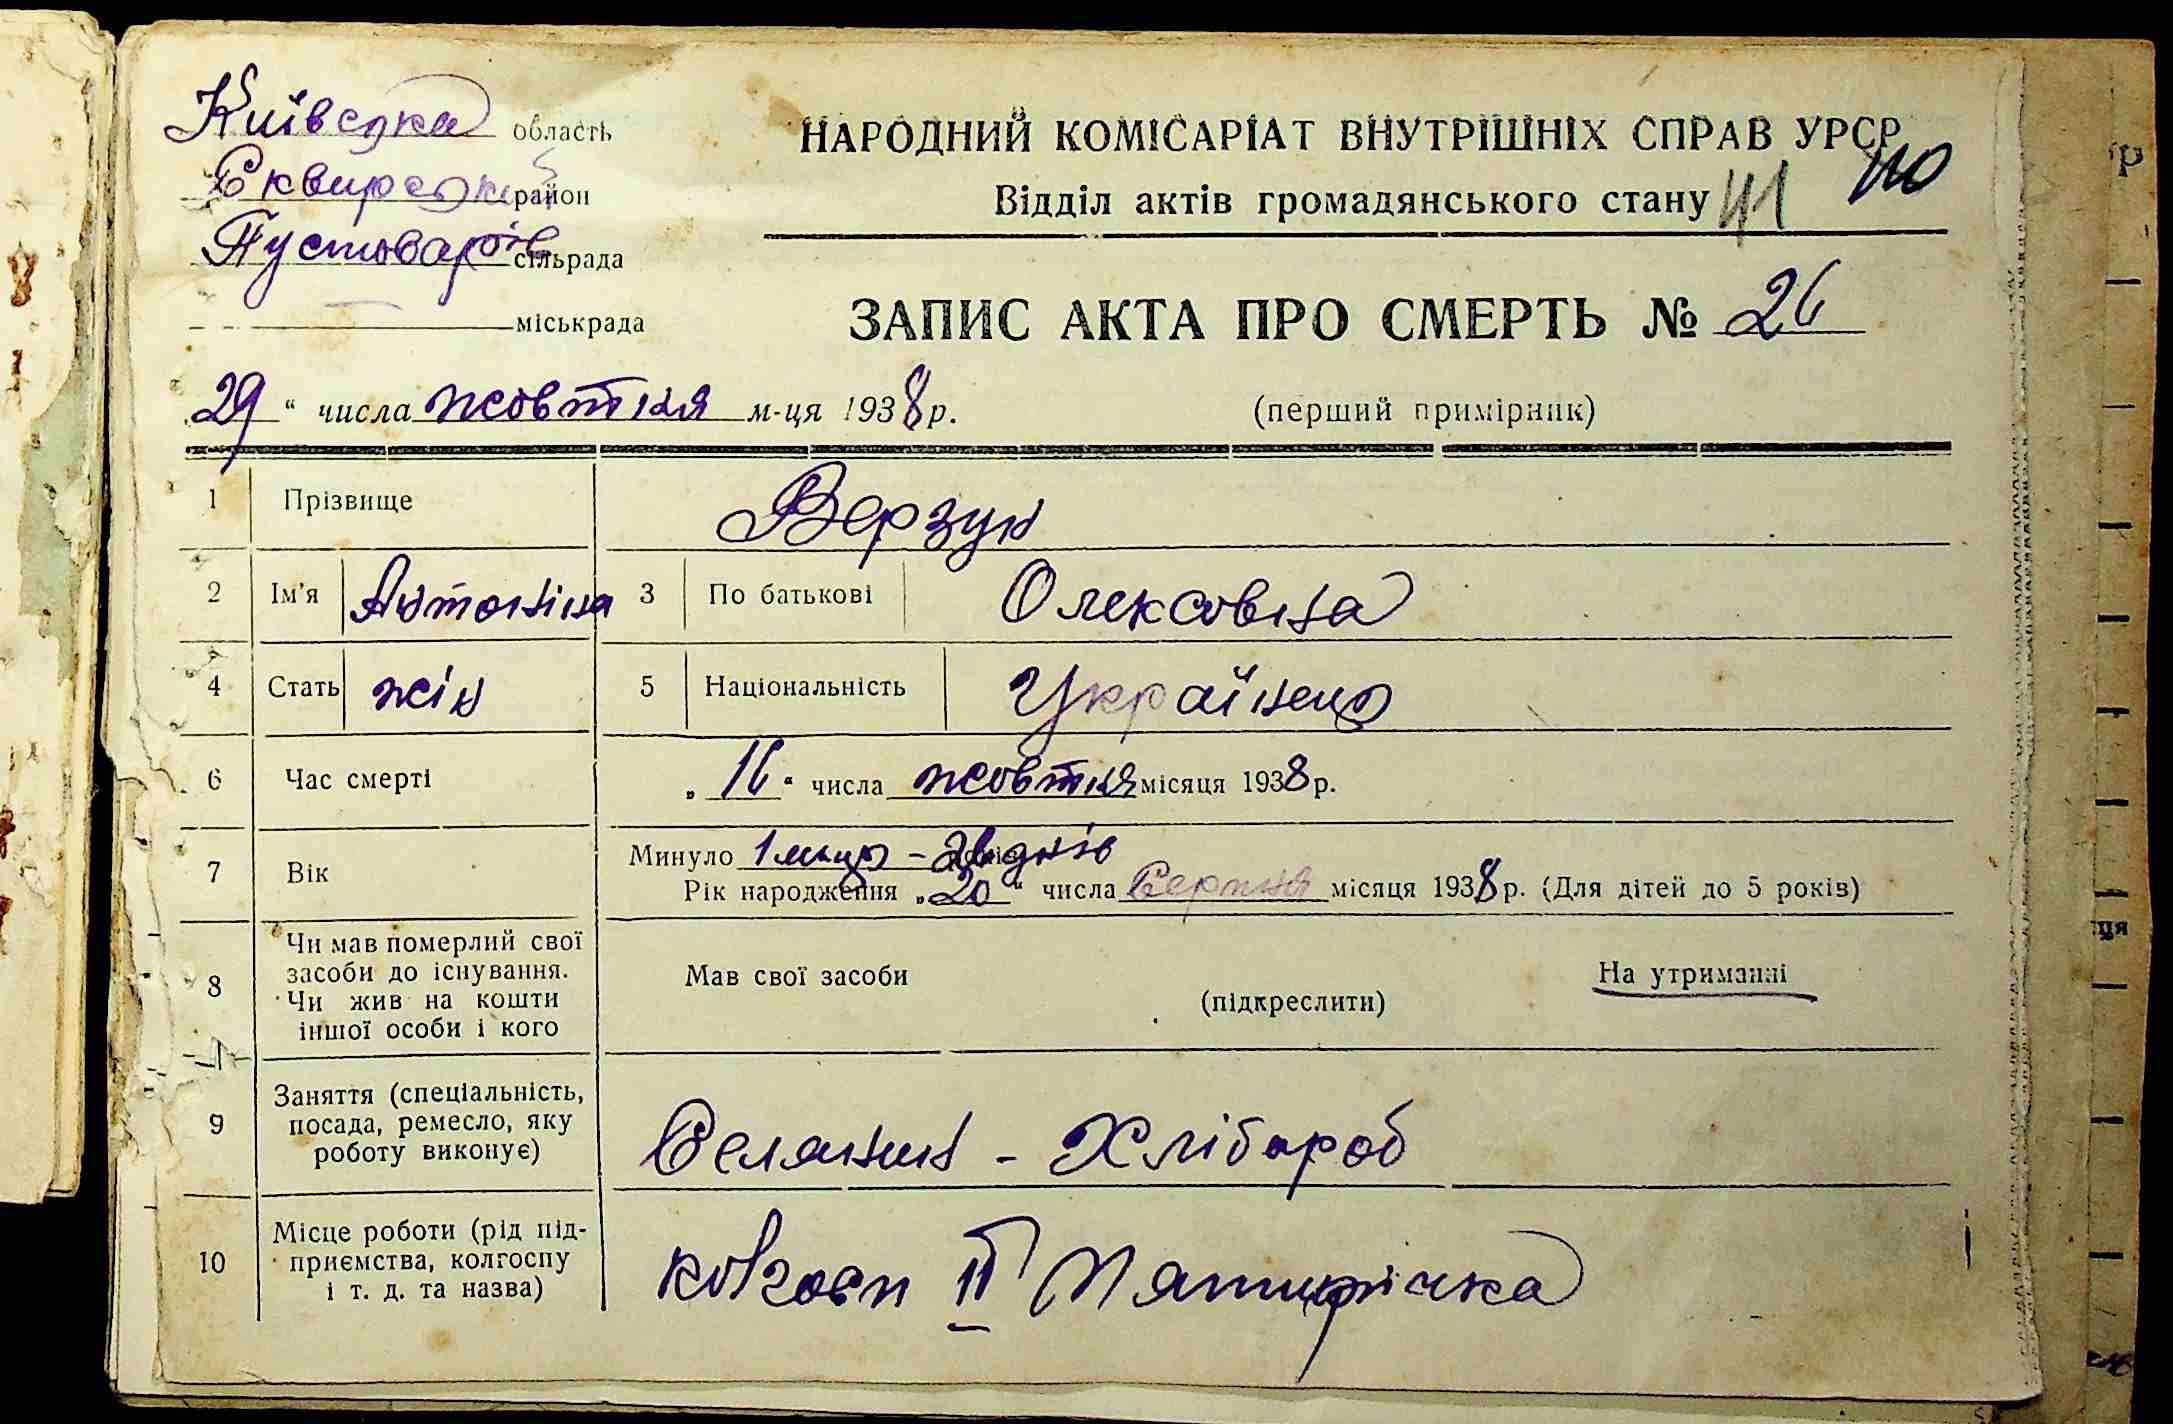 Київська область
Сквирський район
Пустоварів сільрада
міськрада
НАРОДНИЙ КОМІСАРІАТ ВНУТРІШНІХ СПРАВ УРСР
110
Відділ актів громадянського стану 41
ЗАПИС АКТА ПРО СМЕРТЬ № 26
29 " числа жовтня м-ця 1938 р.
(перший примірник)
1 Прізвище Верзун
2 Ім'я Антоніна 3 По батькові Олексовна
4 Стать жін 5 Національність Українец
6 Час смерті „ 16 " числа жовтня місяця 1938 р.
7 Вік Минуло 1 місяц - 28 днів
Рік народження „ 20 " числа Серпня місяця 1938 р. (Для дітей до 5 років)
8 Чи мав померлий свої
засоби до існування.
Чи жив на кошти
іншої особи і кого
Мав свої засоби
(підкреслити)
На утриманні
9 Заняття (спеціальність,
посада, ремесло, яку
роботу виконує)
Селянин - Хлібороб
10 Місце роботи (рід під-
приємства, колгоспу
і т. д. та назва)
колгосп II Пятирічка